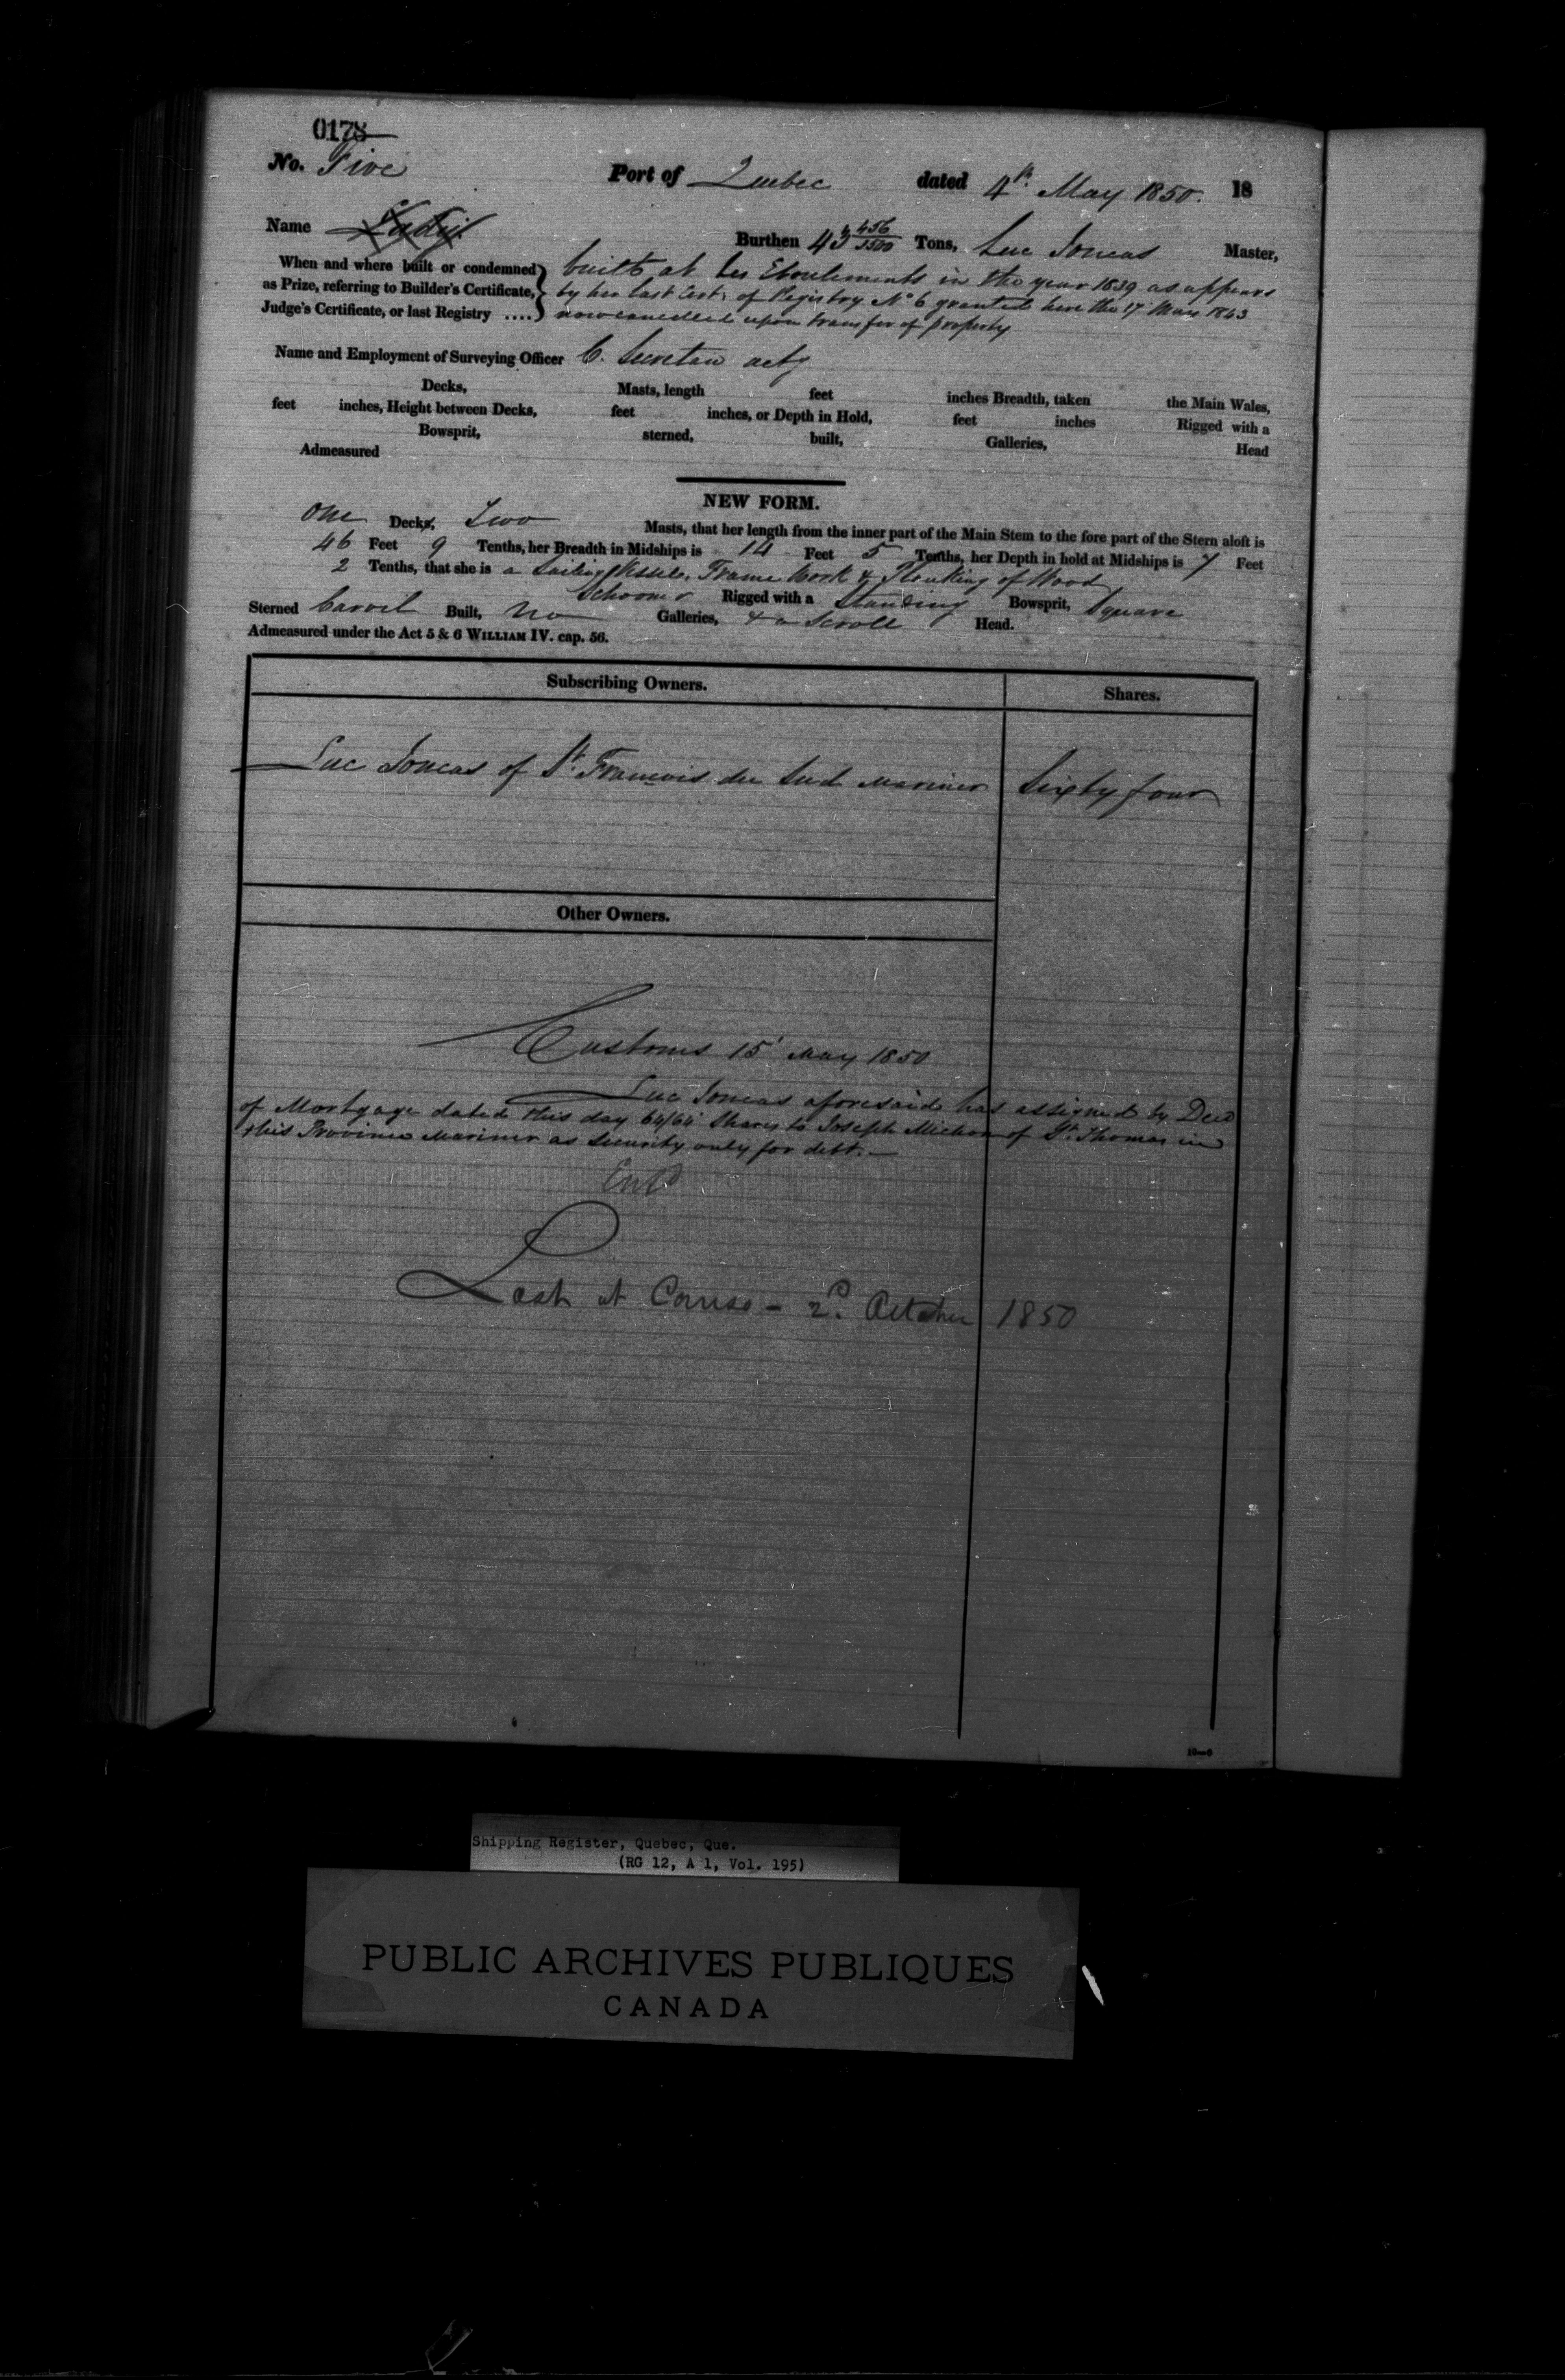 0178
No. Five Port of Quebec dated 4th May 1850. 18
Name Burthen 43 456/3500 Tons, Luc Joncas Master,
When and where built or condemned as Prize, referring to Builder's Certificate, Judge's Certificate, or last Registry ....
built at Les Eboulements in the year 1839 as appears
by her last Cert. of Registry No 6 granted here the 17 May 1843
now cancelled upon transfer of property
Name and Employment of Surveying Officer C. Secretan actg
Decks, Masts, length feet inches Breadth, taken the Main Wales,
feet inches, Height between Decks, feet inches, or Depth in Hold, feet inches Rigged with a
Bowsprit, sterned, built, Galleries, Head
Admeasured
NEW FORM.
One Decks, Two Masts, that her length from the inner part of the Main Stem to the fore part of the Stern aloft is
46 Feet 9 Tenths, her Breadth in Midships is 14 Feet 5 Tenths, her Depth in hold at Midships is 7 Feet
2 Tenths, that she is a Sailing Vessel, Frame Work & Planking of Wood
Schooner Rigged with a Standing Bowsprit, Square
Sterned Carvel Built, No Galleries, & a Scroll Head.
Admeasured under the Act 5 & 6 WILLIAM IV. cap. 56.
Subscribing Owners. Shares.
Luc Joncas of St. François du Sud Mariner Sixty four
Other Owners.
Customs 15 May 1850
Luc Joncas aforesaid has assigned by Deed
of Mortgage dated this day 64/64 Shares to Joseph Michon of St. Thomas in
this Province Mariner as Security only for debt.
Entd
Lost at Canso - 2d. October 1850
10—6
Shipping Register, Quebec, Que.
(RG 12, A 1, Vol. 195)
PUBLIC ARCHIVES PUBLIQUES
CANADA